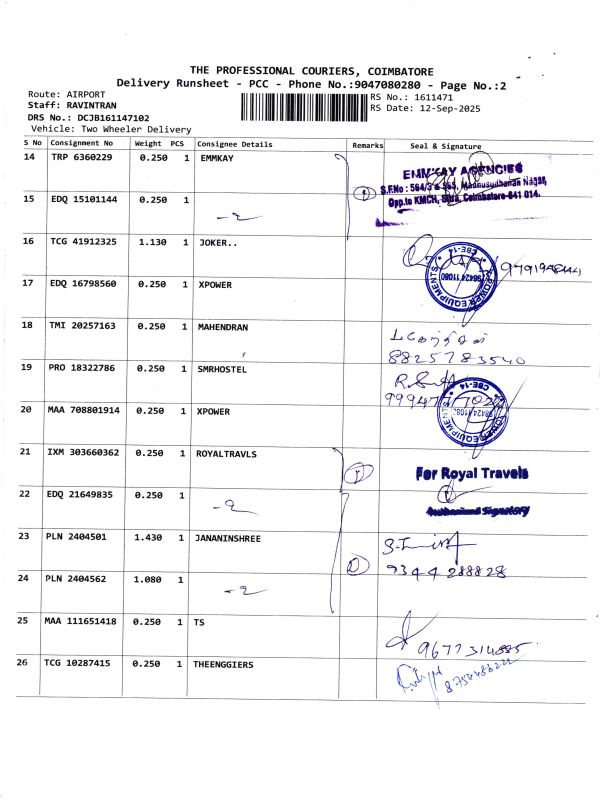 THE PROFESSIONAL COURIERS, COIMBATORE
Delivery Runsheet - PCC - Phone No.:9047080280 - Page No.:2
Route: AIRPORT
RS No.: 1611471
Staff: RAVINTRAN
RS Date: 12-Sep-2025
DRS No.: DCJB161147102
Vehicle: Two Wheeler Delivery
S No Consignment No Weight PCS Consignee Details Remarks Seal & Signature
14 TRP 6360229 0.250 1 EMMKAY
EMMKAY AGENCIES
S.F.No : 564/3 & 565, Madhusudhanan Nagar,
Opp.to KMCH, Sitra, Coimbatore-641 014.
15 EDQ 15101144 0.250 1
-2
16 TCG 41912325 1.130 1 JOKER..
X POWER EQUIPMENTS
98424 11080
CBE-14
17 EDQ 16798560 0.250 1 XPOWER
18 TMI 20257163 0.250 1 MAHENDRAN
8825783540
19 PRO 18322786 0.250 1 SMRHOSTEL
20 MAA 708801914 0.250 1 XPOWER
X POWER EQUIPMENTS
98424 11080
CBE-14
21 IXM 303660362 0.250 1 ROYALTRAVLS
For Royal Travels
Authorised Signatory
22 EDQ 21649835 0.250 1
-2
23 PLN 2404501 1.430 1 JANANINSHREE
9344288828
24 PLN 2404562 1.080 1
-2
25 MAA 111651418 0.250 1 TS
26 TCG 10287415 0.250 1 THEENGGIERS